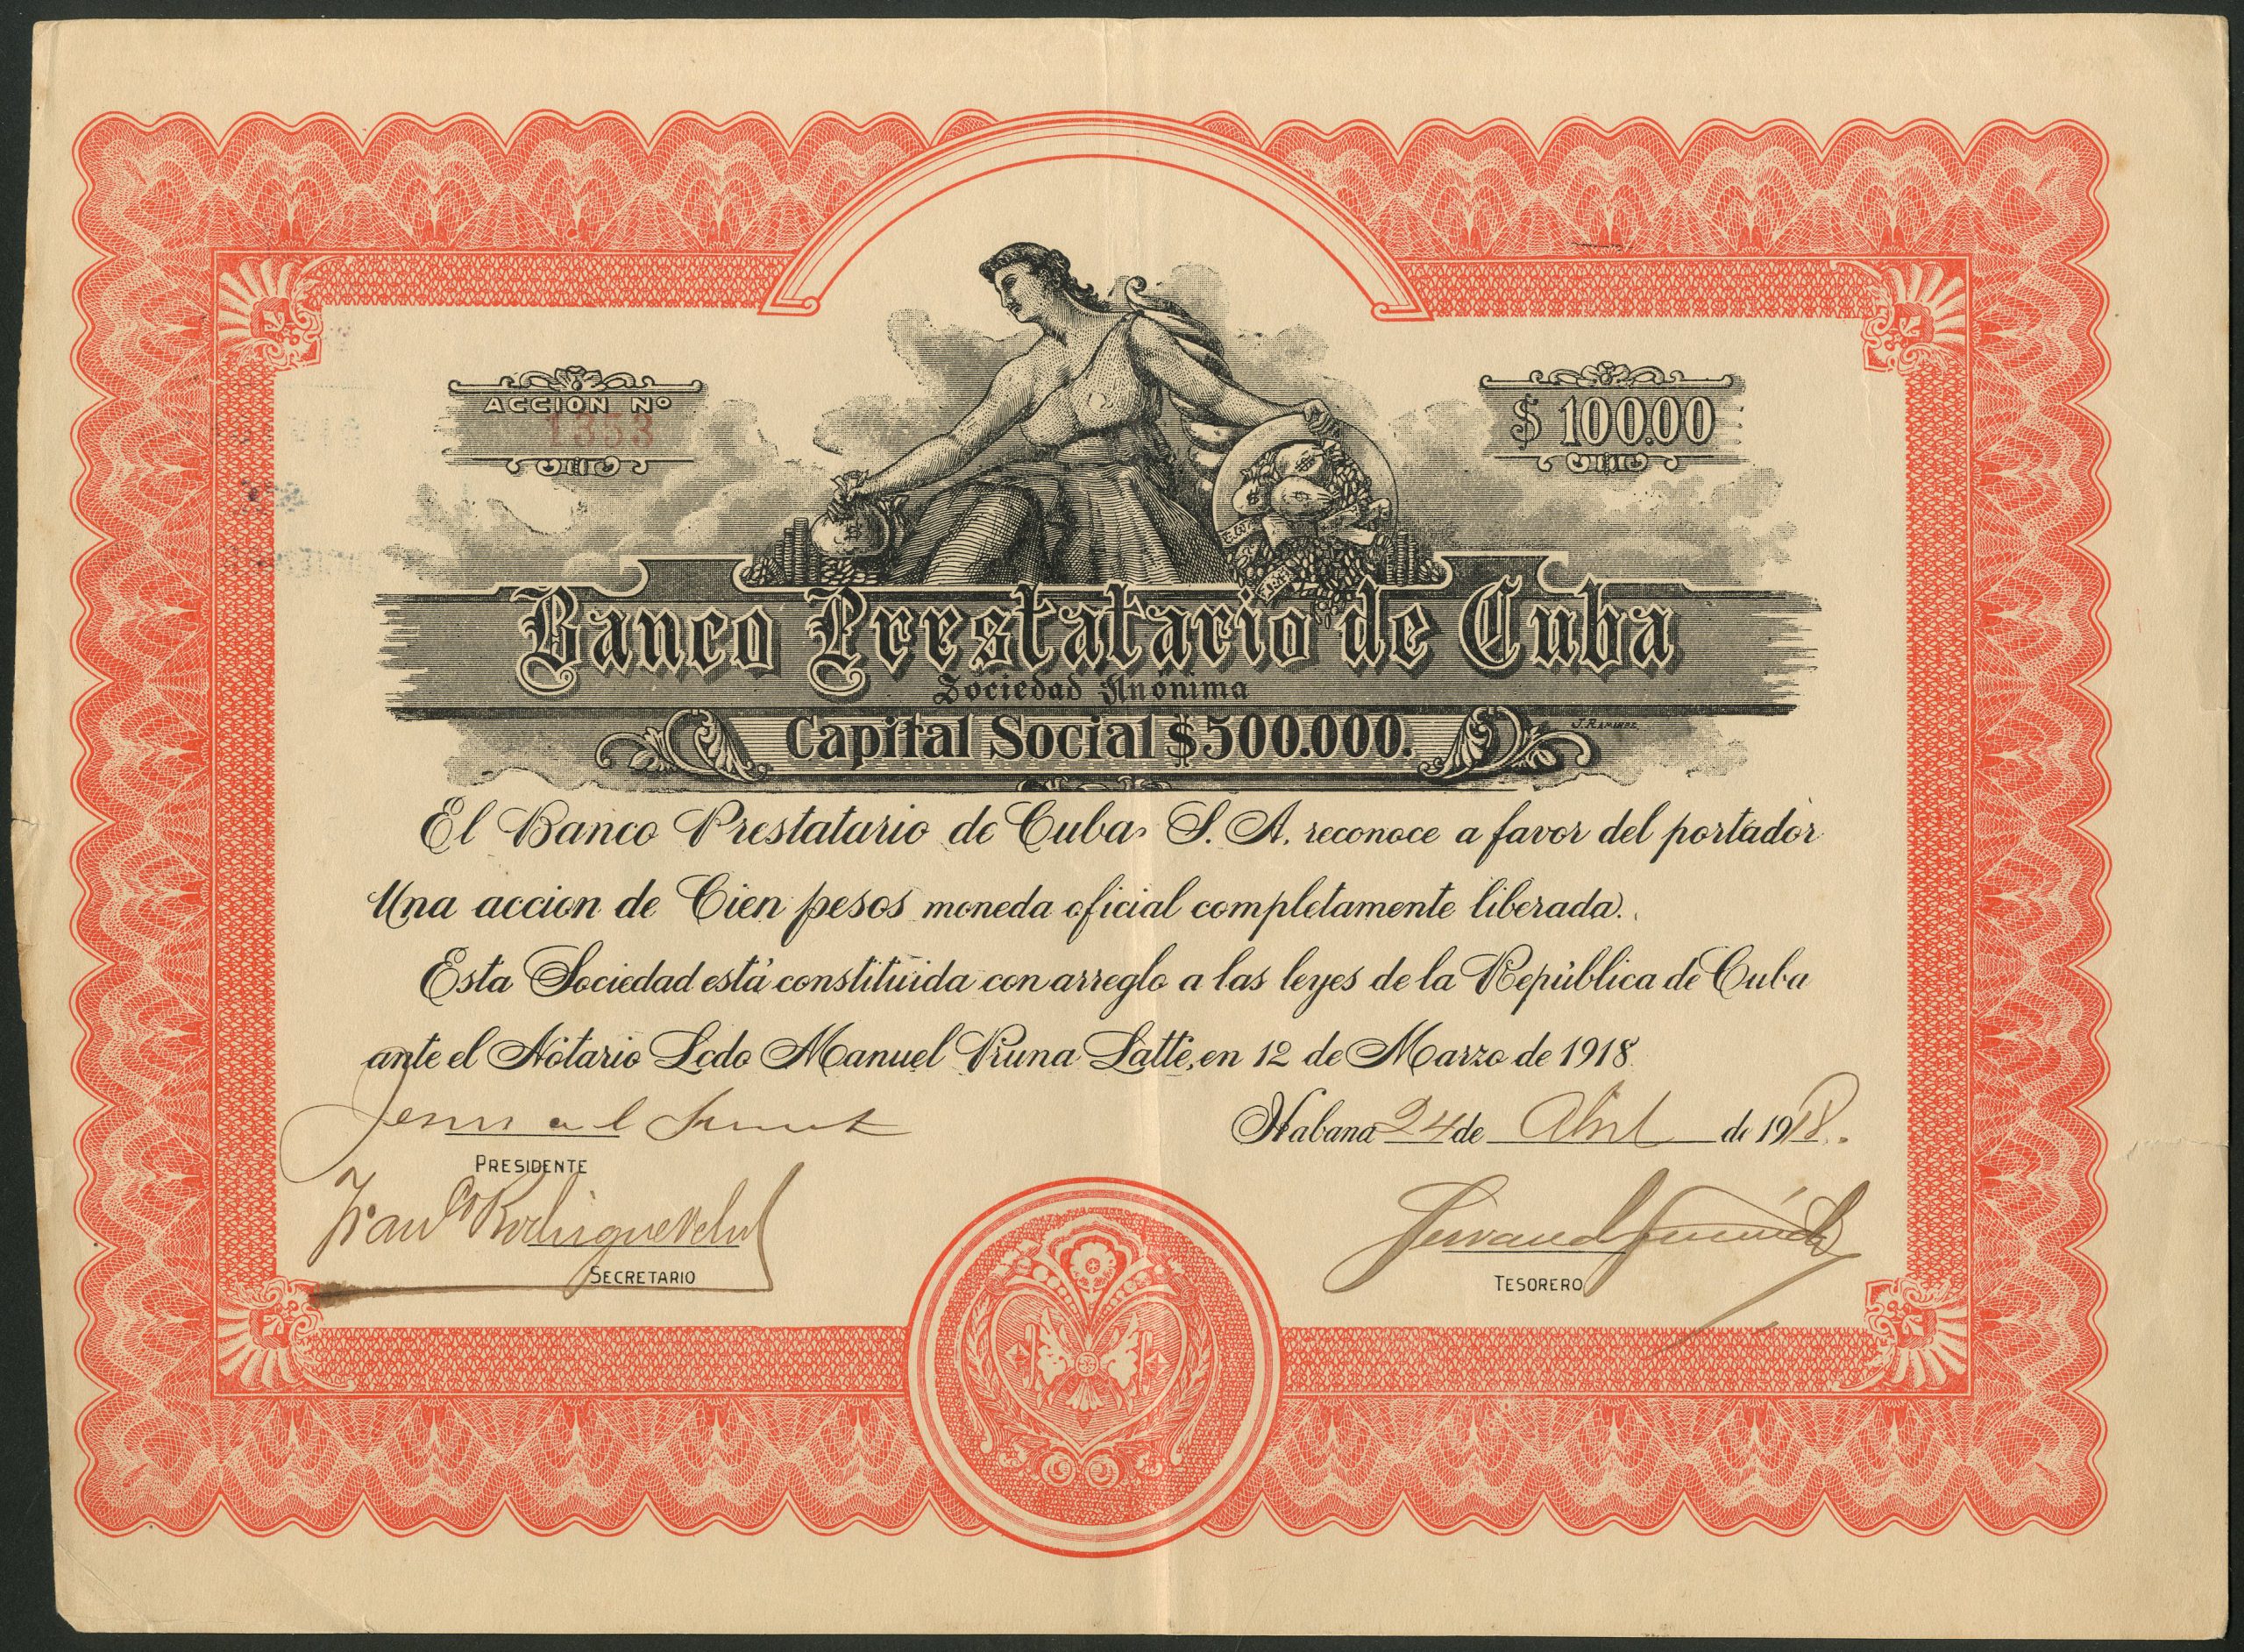 ACCION Nº
1353
$ 100.00
Banco Prestatario de Cuba
Sociedad Anónima
Capital Social $500.000.
J. RAMIREZ
El Banco Prestatario de Cuba S. A. reconoce a favor del portador
Una accion de Cien pesos moneda oficial completamente liberada.
Esta Sociedad está constituida con arreglo a las leyes de la República de Cuba
ante el Notario Lcdo Manuel Pruna Latté, en 12 de Marzo de 1918
Habana 24 de Abril de 1918.
PRESIDENTE
Franco Rodriguez
SECRETARIO
TESORERO